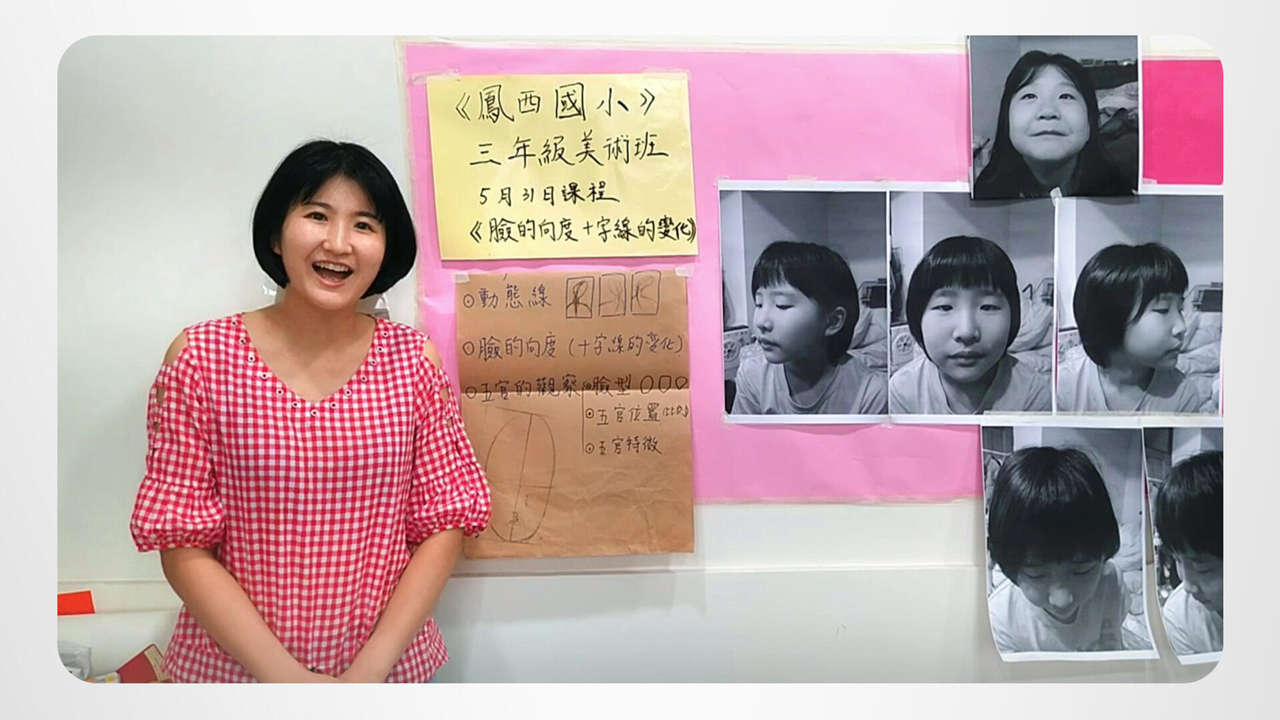 《鳳西國小》
三年級美術班
5月31日課程
《臉的向度十字線的變化》
⊙動態線
⊙臉的向度(十字線的變化)
⊙五官的觀察 ⊙臉型
⊙五官位置
⊙五官特徵